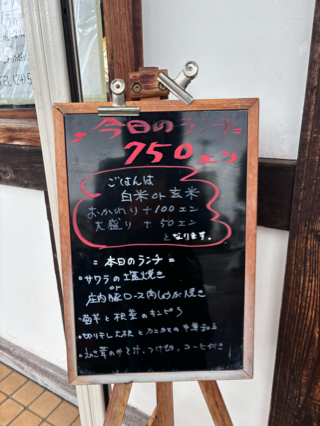 今日のランチ
750エン
ごはんは
白米or玄米
おかわり+100エン
大盛り+50エン
となります。
=本日のランチ=
・サワラの塩焼き
or
庄内豚ロース肉しょうが焼き
・菊芋と根菜のキンピラ
・切り干し大根とカニカマの中華和え
・えのき茸のみそ汁、つけもの、コーヒー付き